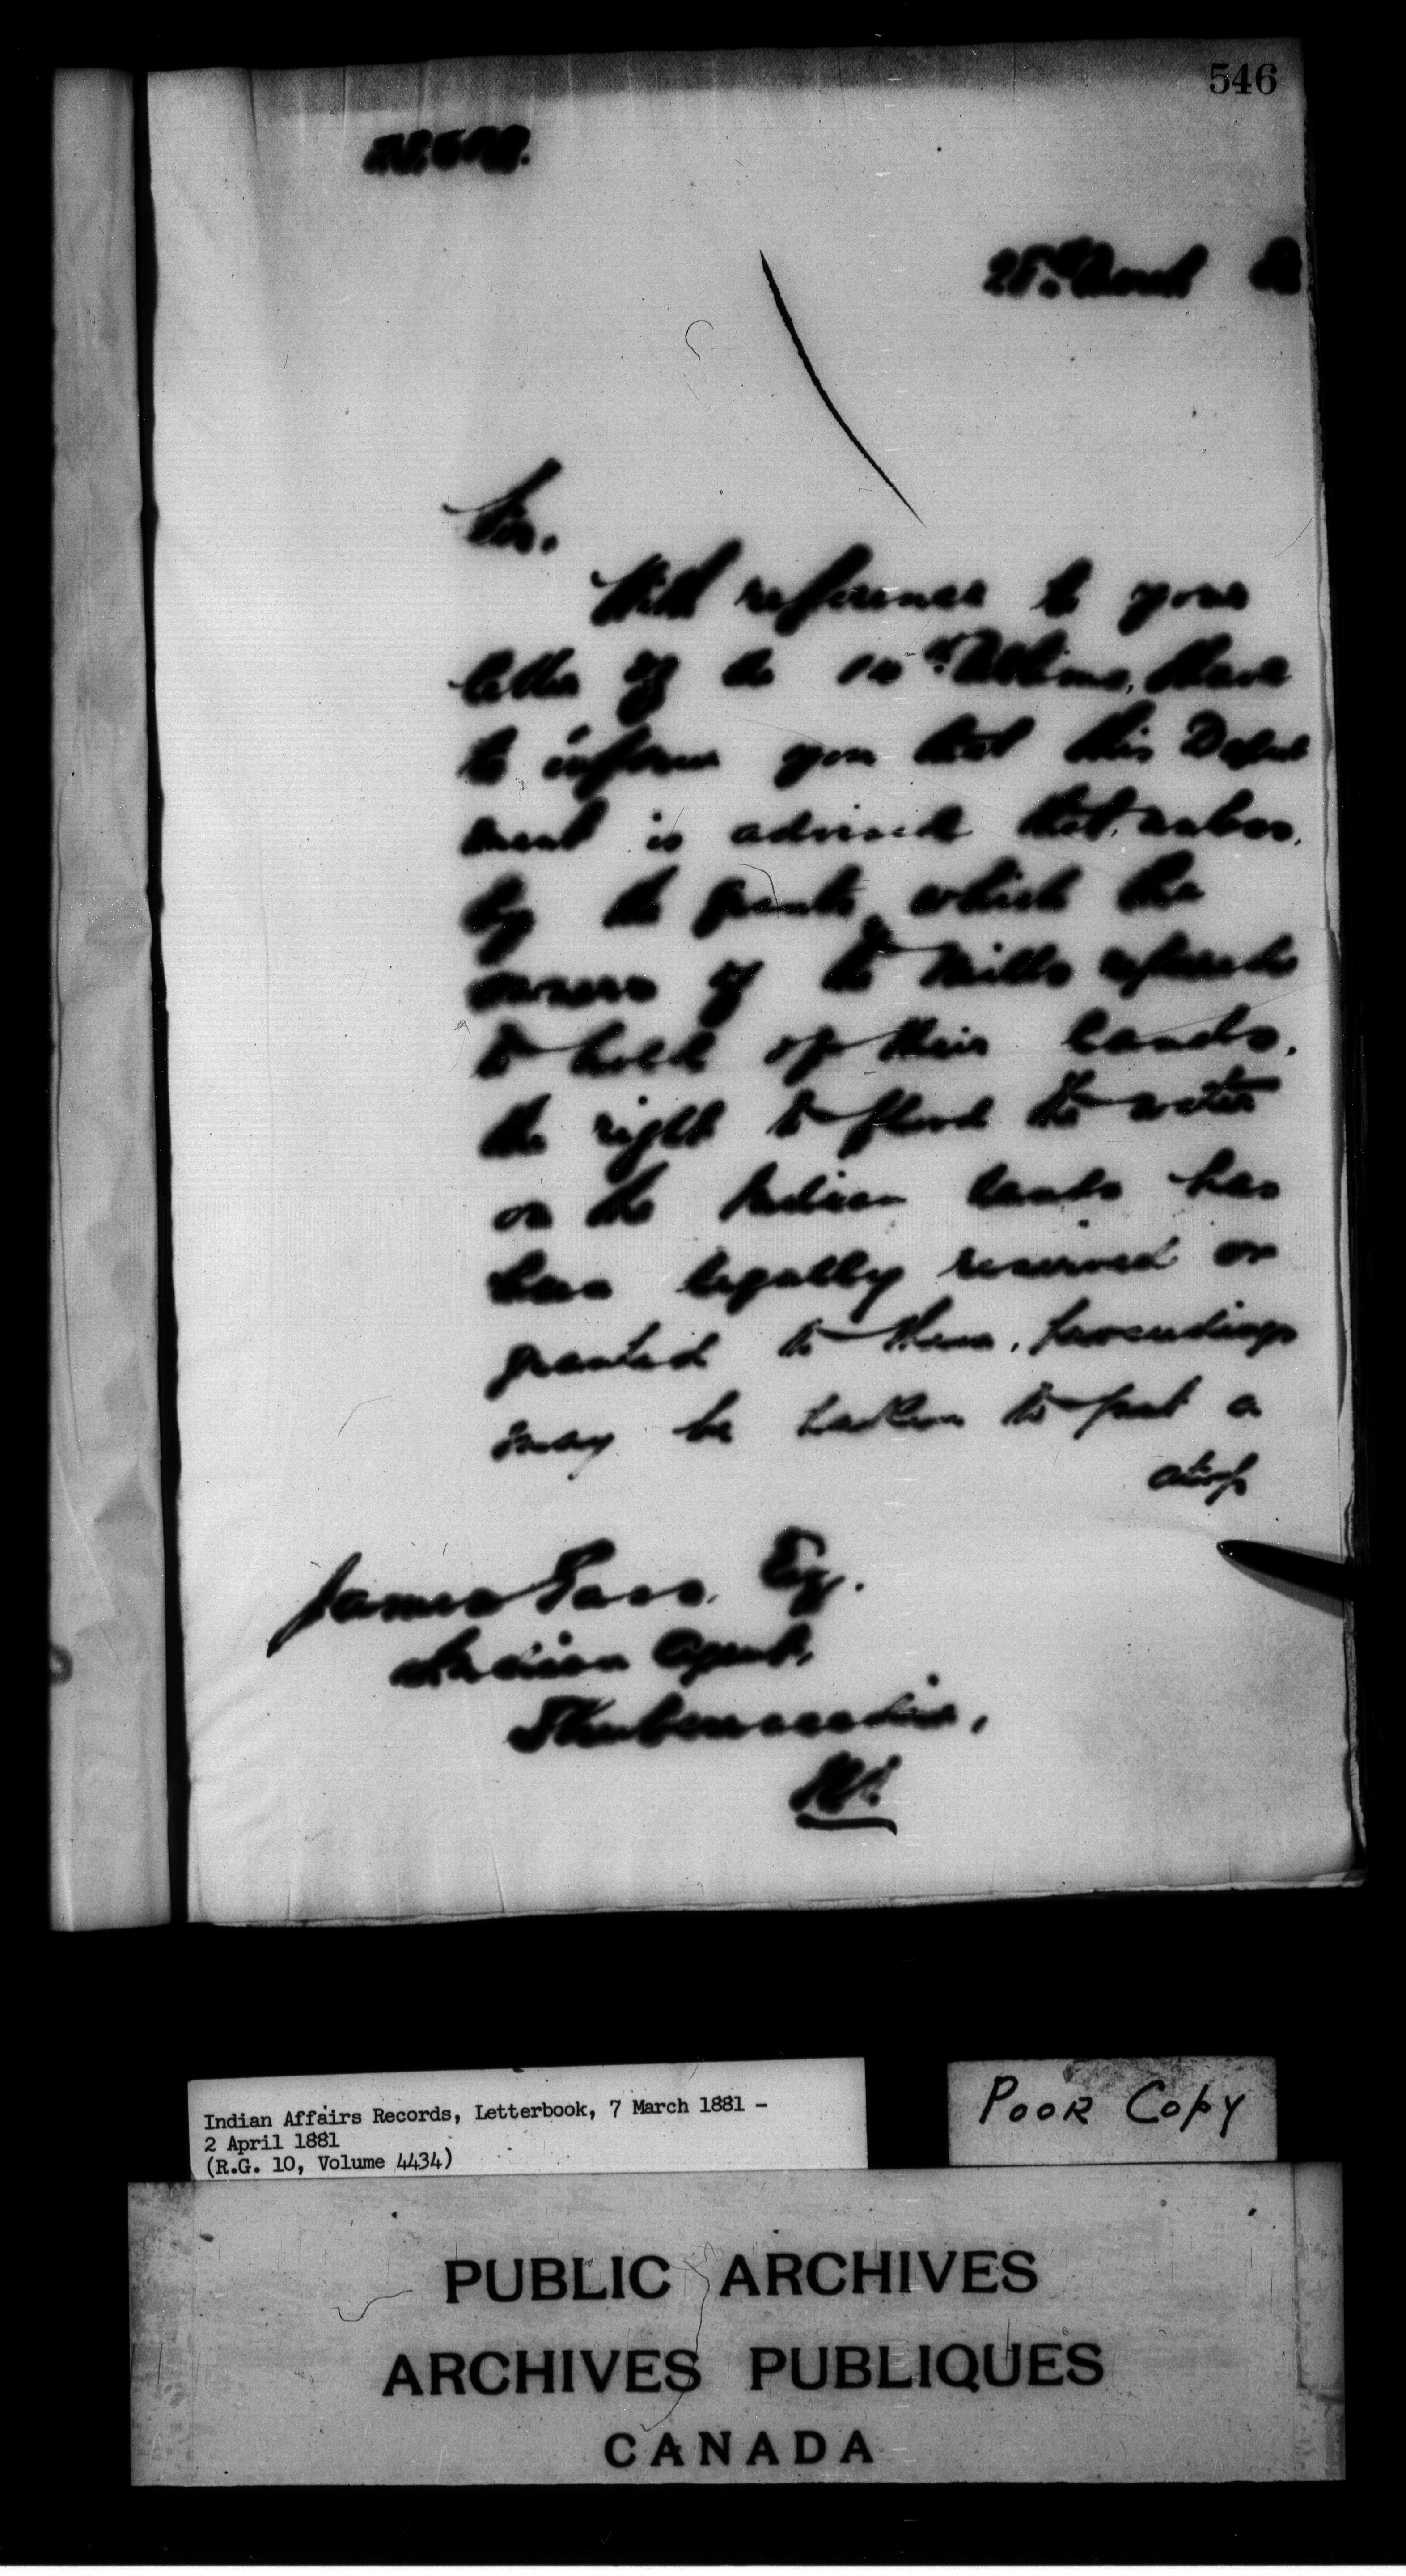 546
28th March 81
Sir,
With reference to your
letter of the 10th Ultimo, I have
to inform you that this Depart
ment is advised that, unless,
by the grants, which the
owners of the Mills
to hold of their lands,
the right to flood the water
on the Indian lands has
been legally reserved or
granted to them, proceedings
may be taken to put a
stop
James Gass, Esq.
Indian Agent,
Shubenacadie,
N.S.
Indian Affairs Records, Letterbook, 7 March 1881 -
2 April 1881
(R.G. 10, Volume 4434)
POOR COPY
PUBLIC ARCHIVES
ARCHIVES PUBLIQUES
CANADA